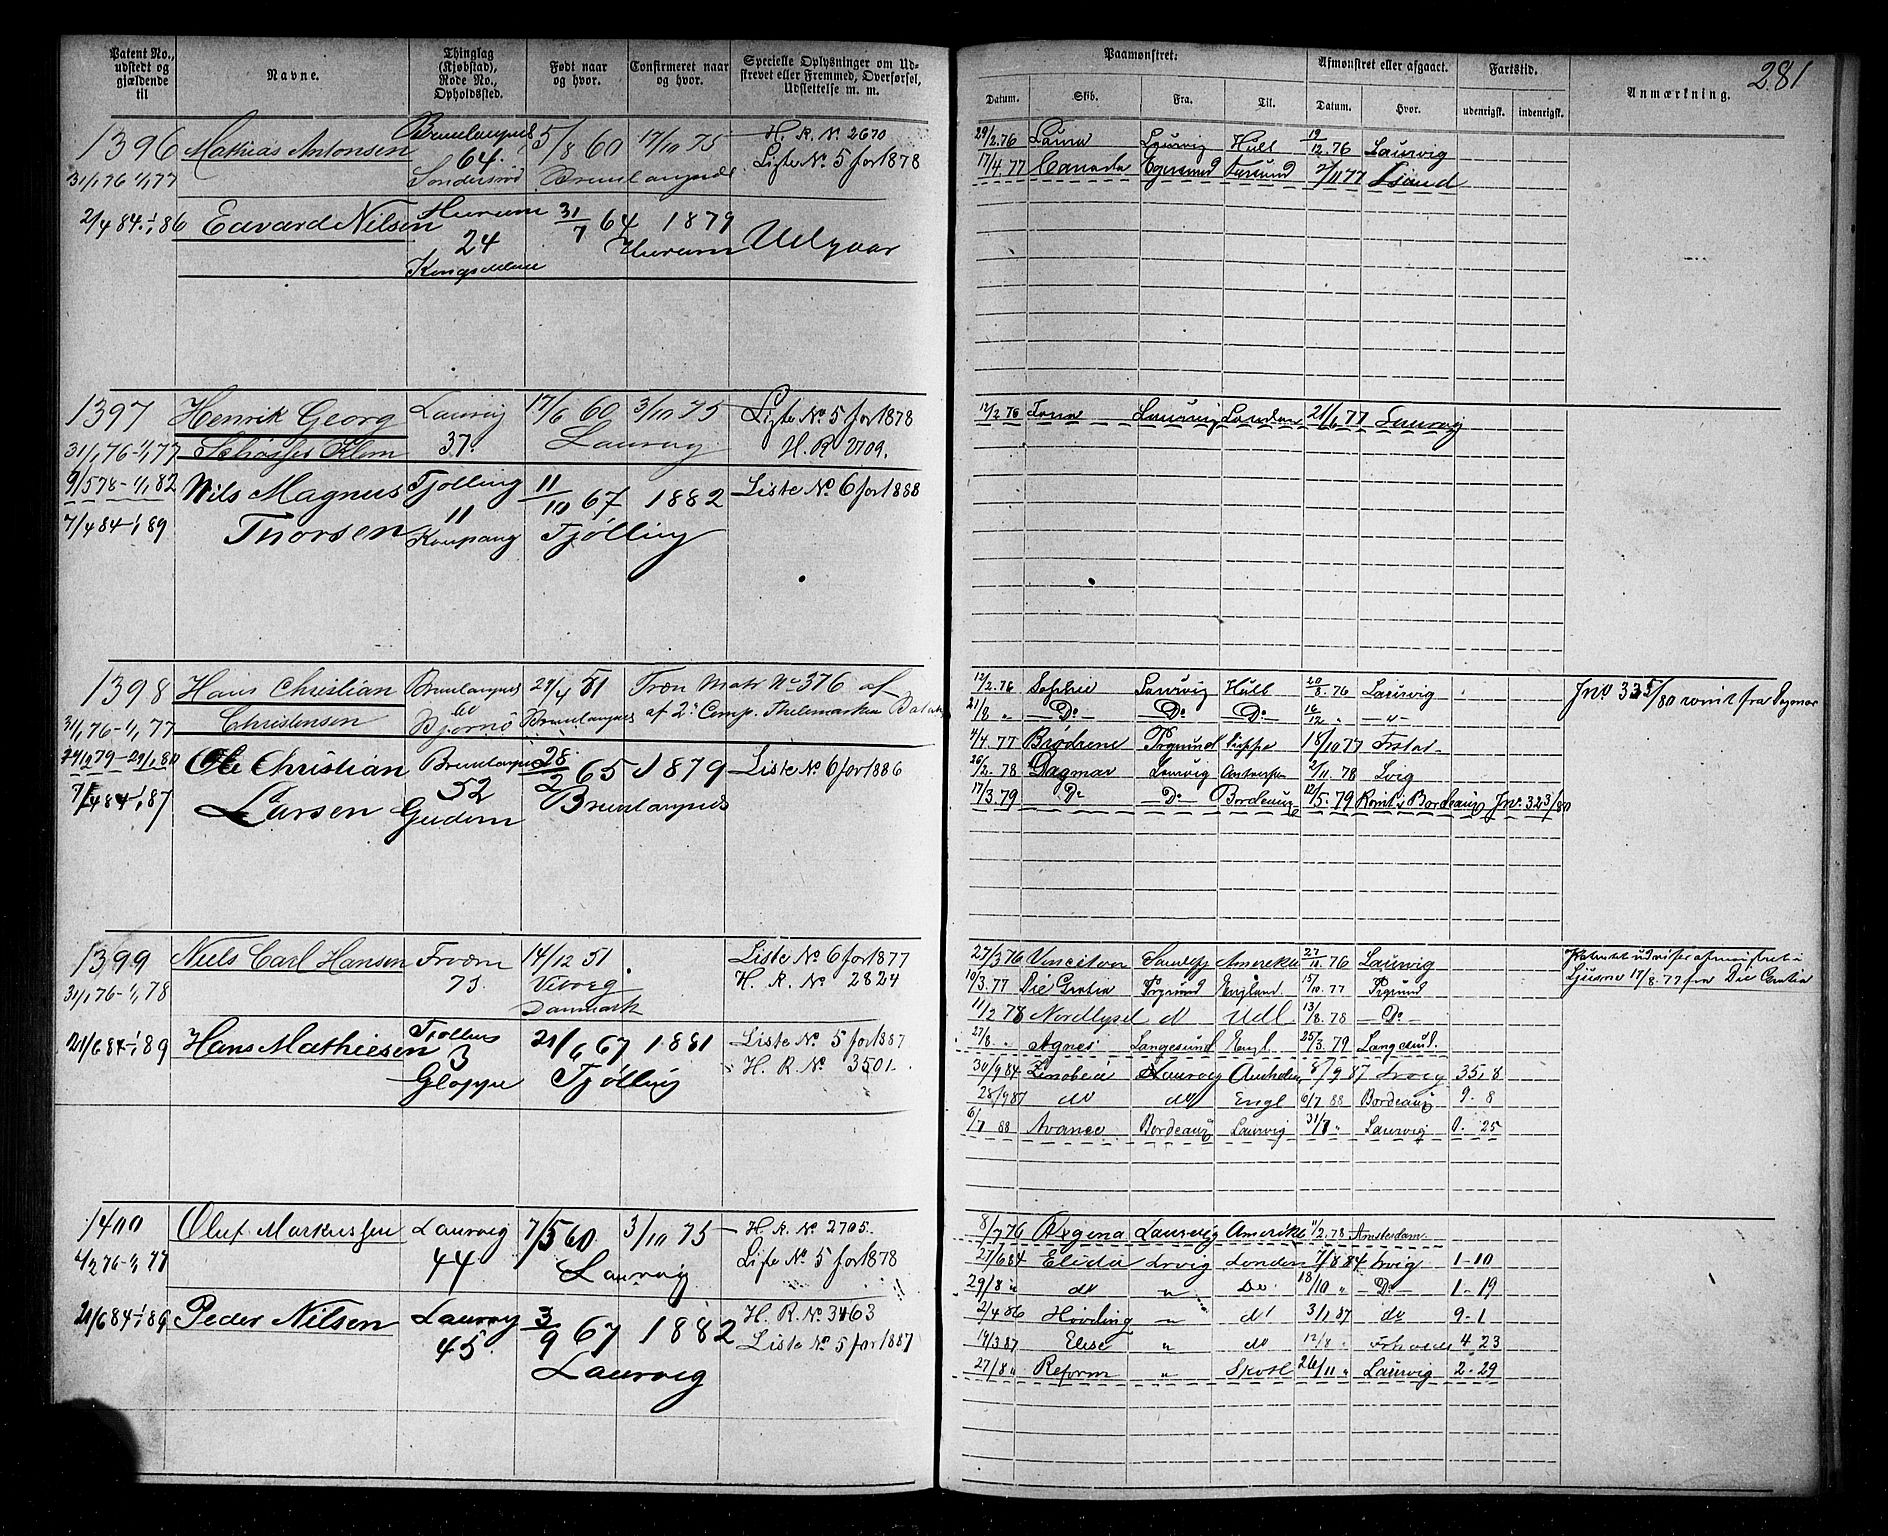 281
Patent No., udstedt og gjældende til
Navne.
Thinglag (Kjøbstad), Rode No., Opholdssted.
Født naar og hvor.
Confirmeret naar og hvor.
Specielle Oplysninger om Udskrevet eller Fremmed, Overførsel, Udslettelse m. m.
Paamønstret:
Afmønstret eller afgaaet.
Fartstid.
Anmærkning.
Datum. Skib. Fra. Til. Datum. Hvor. udenrigsk. indenrigsk.
1396 Mathias Antonsen Brunlangnes 5/8 60 17/10 75 H. R. No 2670
31/1 76 1/1 77 64 Brunlangnes Liste No 5 for 1878
29/2.76 Laura Laurvig Hull 19/12.76 Laurvig
17/4.77 Canada Egersund 2/11 77
2/4 84-1/1 86 Edvard Nilsen Hurum 31/7 64 1879
24 Hurum Udgaar
1397 Henrik Georg Laurvig 17/6 60 3/10 75 Liste No 5 for 1878
31/1 76-1/1 77 37. Laurvig H. R 2709.
12/2 76 Laurvig London 21/6 77 Laurvig
9/5 78-1/1 82 Nils Magnus Tjølling 11/10 67 1882 Liste No 6 for 1888
7/4 84-1/1 89 Thorsen 11 Kaupang Tjølling
1398 Hans Christian Brunlangnes 29/4 51 Træn Matr No 376 af
31/1 76-1/1 77 Christensen Bjørnø Brunlangnes af 2' Comp. Thelemarken Bat
12/2.76 Sophie Laurvig Hull 20/8.76 Laurvig
21/8 " Do Do Do 16/12 " - " -
4/4.77 Brødrene 18/10 77
26/2.78 Dagmar Laurvig 2/11.78 Lvig
17/3.79 Do Do Bordeaux 12/5.79 Rømt Bordeaux Jnr. 323/80
Jnr 335/80 rømt fra Dagmar
Ole Christian Brunlangnes 28/2 65 1879 Liste No 6 for 1886
7/4 84-1/1 87 Larsen 52 Brunlangnes
1399 Niels Carl Hansen 14/12 51 Liste No 6 for 1877
31/1 76-1/1 78 73. Viborg Danmark H. R. No 2824
27/3 76 Amerika 27/10.76 Laurvig
10/3.77 Die Gratia England 15/10.77
11/2 78 Nordlyset do Udl 13/8.78 Do
27/8. " Agnes Langesund Engl. 25/3.79 Langesund.
17/8.77 fra Die Gratia
21/6 84-1/1 89 Hans Mathiesen 21/6 67 1881 Liste No 5 for 1887
3 Gloppe Tjølling H. R. No 3501.
30/9 84 Zenobia Laurvig 8/9 87 Lrvig 35. 8
28/9 87 do do Engl 6/7 88 Bordeaux 9. 8
6/7 88 Avance Bordeaux Laurvig 31/7 " Laurvig 0. 25
1400 Oluf Markussen Laurvig 7/5 60 3/10 75 H. R. No 2705.
4/2 76-1/1 77 44 Laurvig Liste No 5 for 1878
8/7 76 Regina Laurvig Amerika 11/2.78 Amsterdam
21/6 84-1/1 89 Peder Nilsen Laurvig 3/9 67 1882 H. R. No 3463
45. Laurvig Liste No 5 for 1887
27/6 84 Elida Lrvig London 7/8 84 Lrvig 1-10
29/8 " do " Do 18/10 " Do 1-19
2/4 86 Høvding " do 3/1 87 do 9-1
19/3 87 Elise " do 12/8 " 4. 23
27/8 " Reform " Skotl 26/11 " Laurvig 2-29